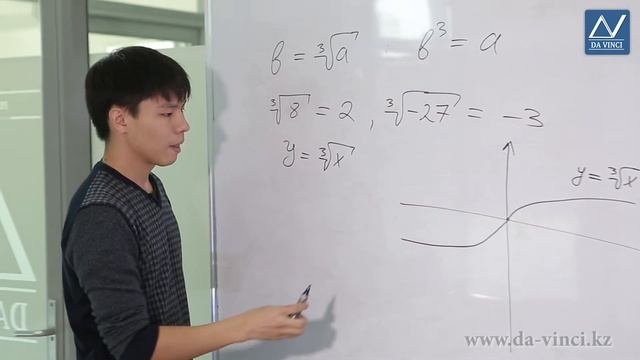 DA VINCI
в = ∛a b³ = a
∛8 = 2 , ∛-27 = -3
y = ∛x
y = ∛x
www.da-vinci.kz